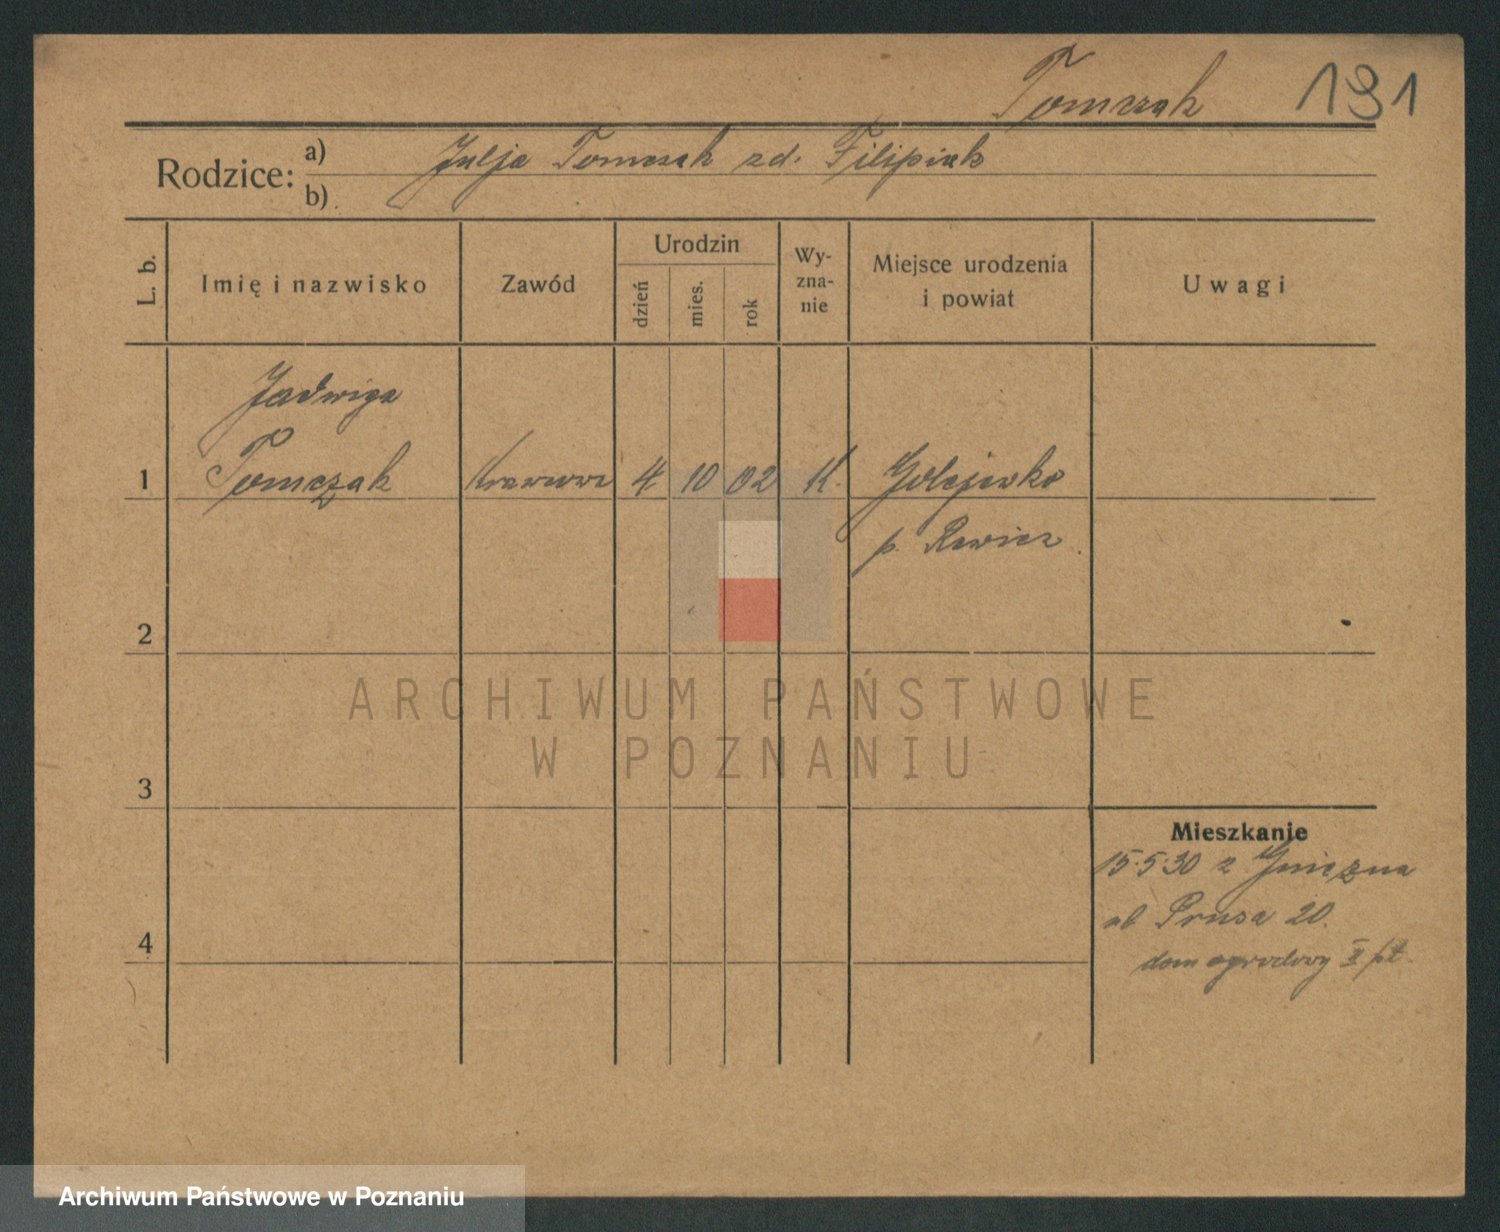 Tomczak 191
Rodzice:
a) Julja Tomczak zd. Filipiak
b)
L. b.
Imię i nazwisko
Zawód
Urodzin
dzień
mies.
rok
Wy-
zna-
nie
Miejsce urodzenia
i powiat
Uwagi
Jadwiga
1 Tomczak Krawcowa 4 10 02 K. Golejewko
p. Rawicz
2
ARCHIWUM PAŃSTWOWE
W POZNANIU
3
Mieszkanie
15.5.30 z Gniezna
ul Prusa 20.
4
dom ogrodowy II pt.
Archiwum Państwowe w Poznaniu